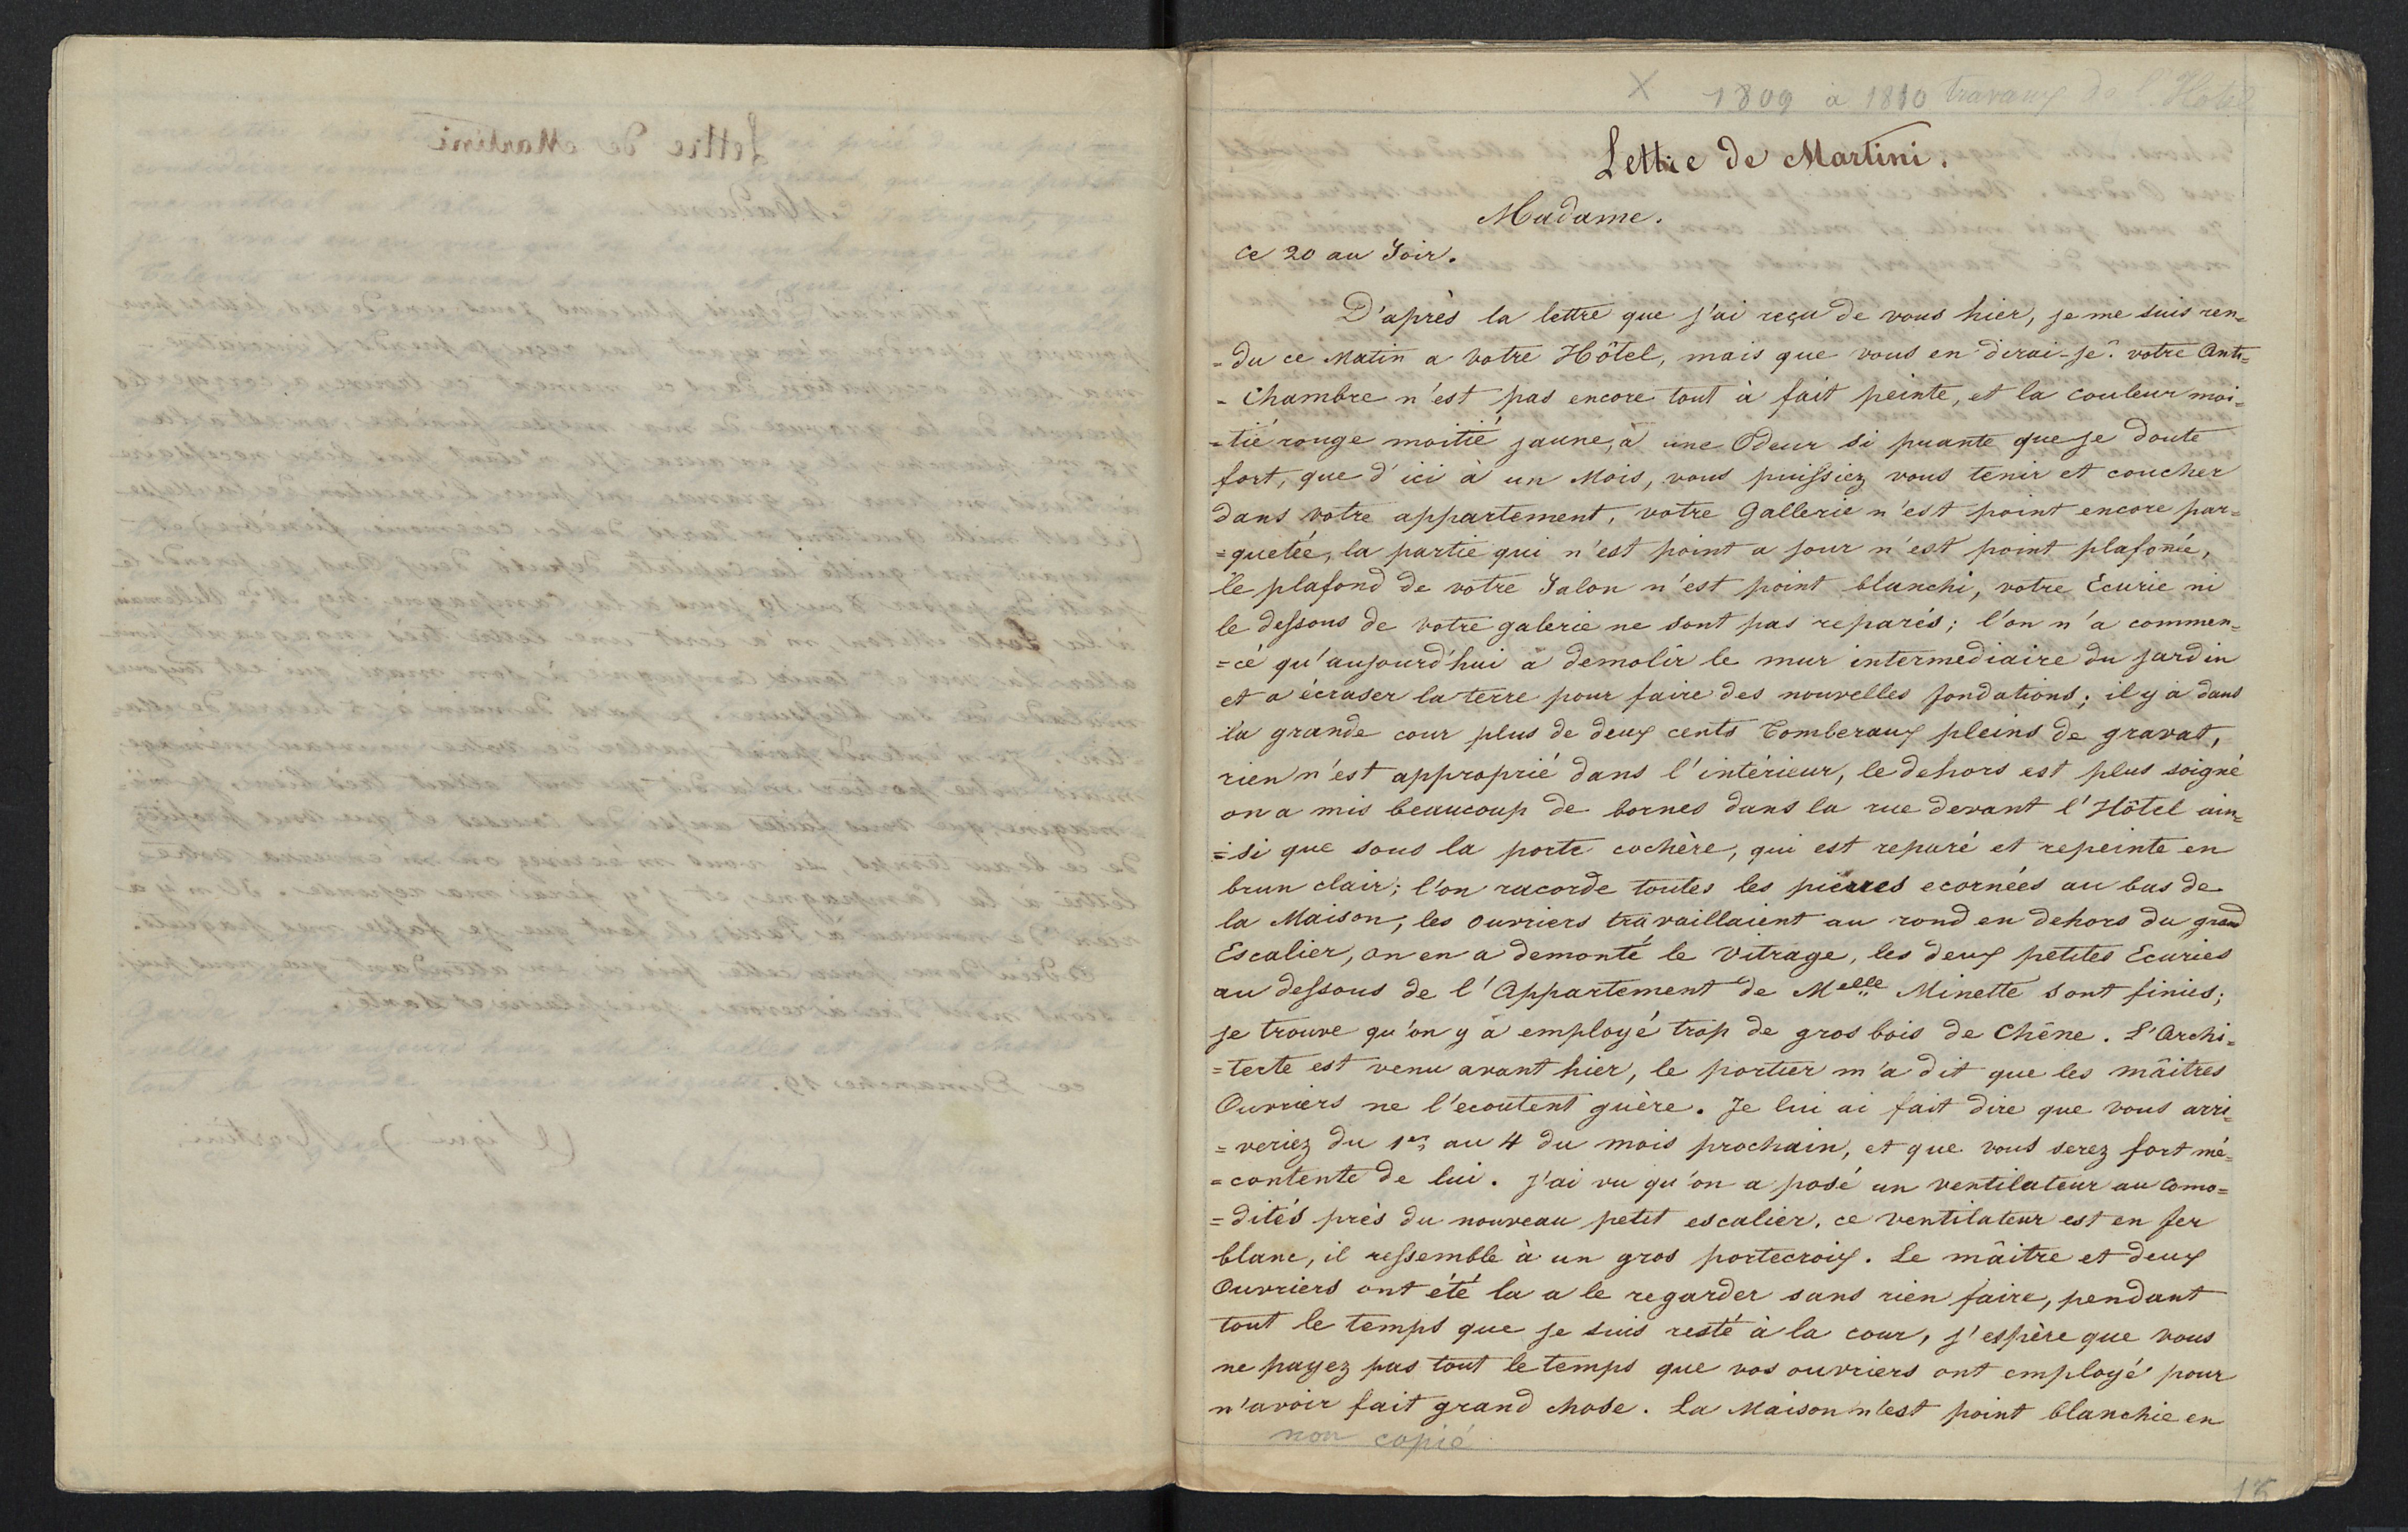 X 1809 à 1810 travaux de l'Hotel
Lettre de Martini.
Madame.
Ce 20 au Soir.
D'après la lettre que j'ai reçu de vous hier, je me suis ren=
=du ce Matin a votre Hôtel, mais que vous en dirai-je? votre Anti=
=Chambre n'est pas encore tout à fait peinte, et la Couleur moi=
=tié rouge moitié jaune, à une Odeur si puante que je doute
fort, que d'ici à un Mois, vous puissiez vous tenir et coucher
dans votre appartement, votre Gallerie n'est point encore par=
=quetée, la partie qui n'est point a jour n'est point plafonée,
le plafond de votre Salon n'est point blanchi, votre Ecurie ni
le dessous de votre galerie ne sont pas reparés; l'on n'a commen=
=cé qu'aujourd'hui à demolir le mur intermediaire du jardin
et a écraser la terre pour faire des nouvelles fondations; il y a dans
la grande cour plus de deux cents Tomberaux pleins de gravat,
rien n'est approprié dans l'intérieur, le dehors est plus soigné
on a mis beaucoup de bornes dans la rue devant l'Hôtel ain=
=si que sous la porte cochère, qui est reparé et repeinte en
brun clair; l'on racorde toutes les pierres ecornées au bas de
la Maison, les ouvriers travaillaient au rond en dehors du grand
Escalier, on en a demonté le vitrage, les deux petites Ecuries
au dessous de l'Appartement de Melle Minette sont finies;
je trouve qu'on y a employé trop de gros bois de Chêne. L'Archi=
=tecte est venu avant hier, le portier m'a dit que les mâitres
Ouvriers ne l'ecoutent guère. Je lui ai fait dire que vous arri=
=veriez du 1er au 4 du mois prochain, et que vous serez fort mé=
=contente de lui. J'ai vu qu'on a posé un ventilateur au Como=
=dités près du nouveau petit escalier, ce ventilateur est en fer
blanc, il ressemble à un gros portecroix. Le mâitre et deux
Ouvriers ont été la a le regarder sans rien faire, pendant
tout le temps que je suis resté à la cour, j'espère que vous
ne payez pas tout le temps que vos ouvriers ont employé pour
n'avoir fait grand chose. La Maison n'est point blanchie en
non copié